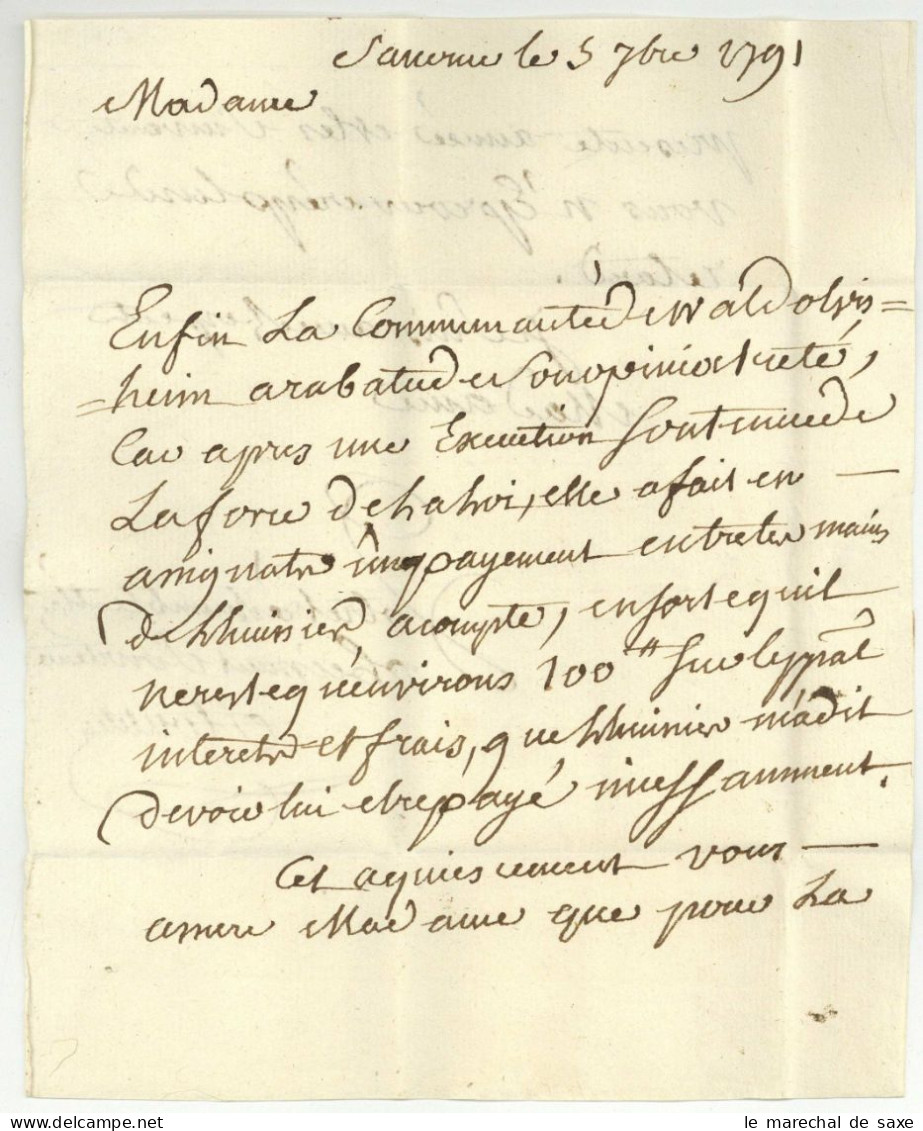 Saverne le 5 7bre 1791
Madame
Enfin La Communauté de Waldolvis=
=heim a rabatu de Son opiniatreté,
Car apres une Execution Soutenue de
La force de la loi, elle a fait en —
assignats un payement entre les mains
de l'huissier, acompte, en sorte qu'il
ne reste qu'environs 100 ₶ Sur le ppal
interets et frais, que l'huissier m'a dit
devoir lui etre payé incessamment.
Cet aquiescement vous —
assure Madame que pour La
le marechal de saxe